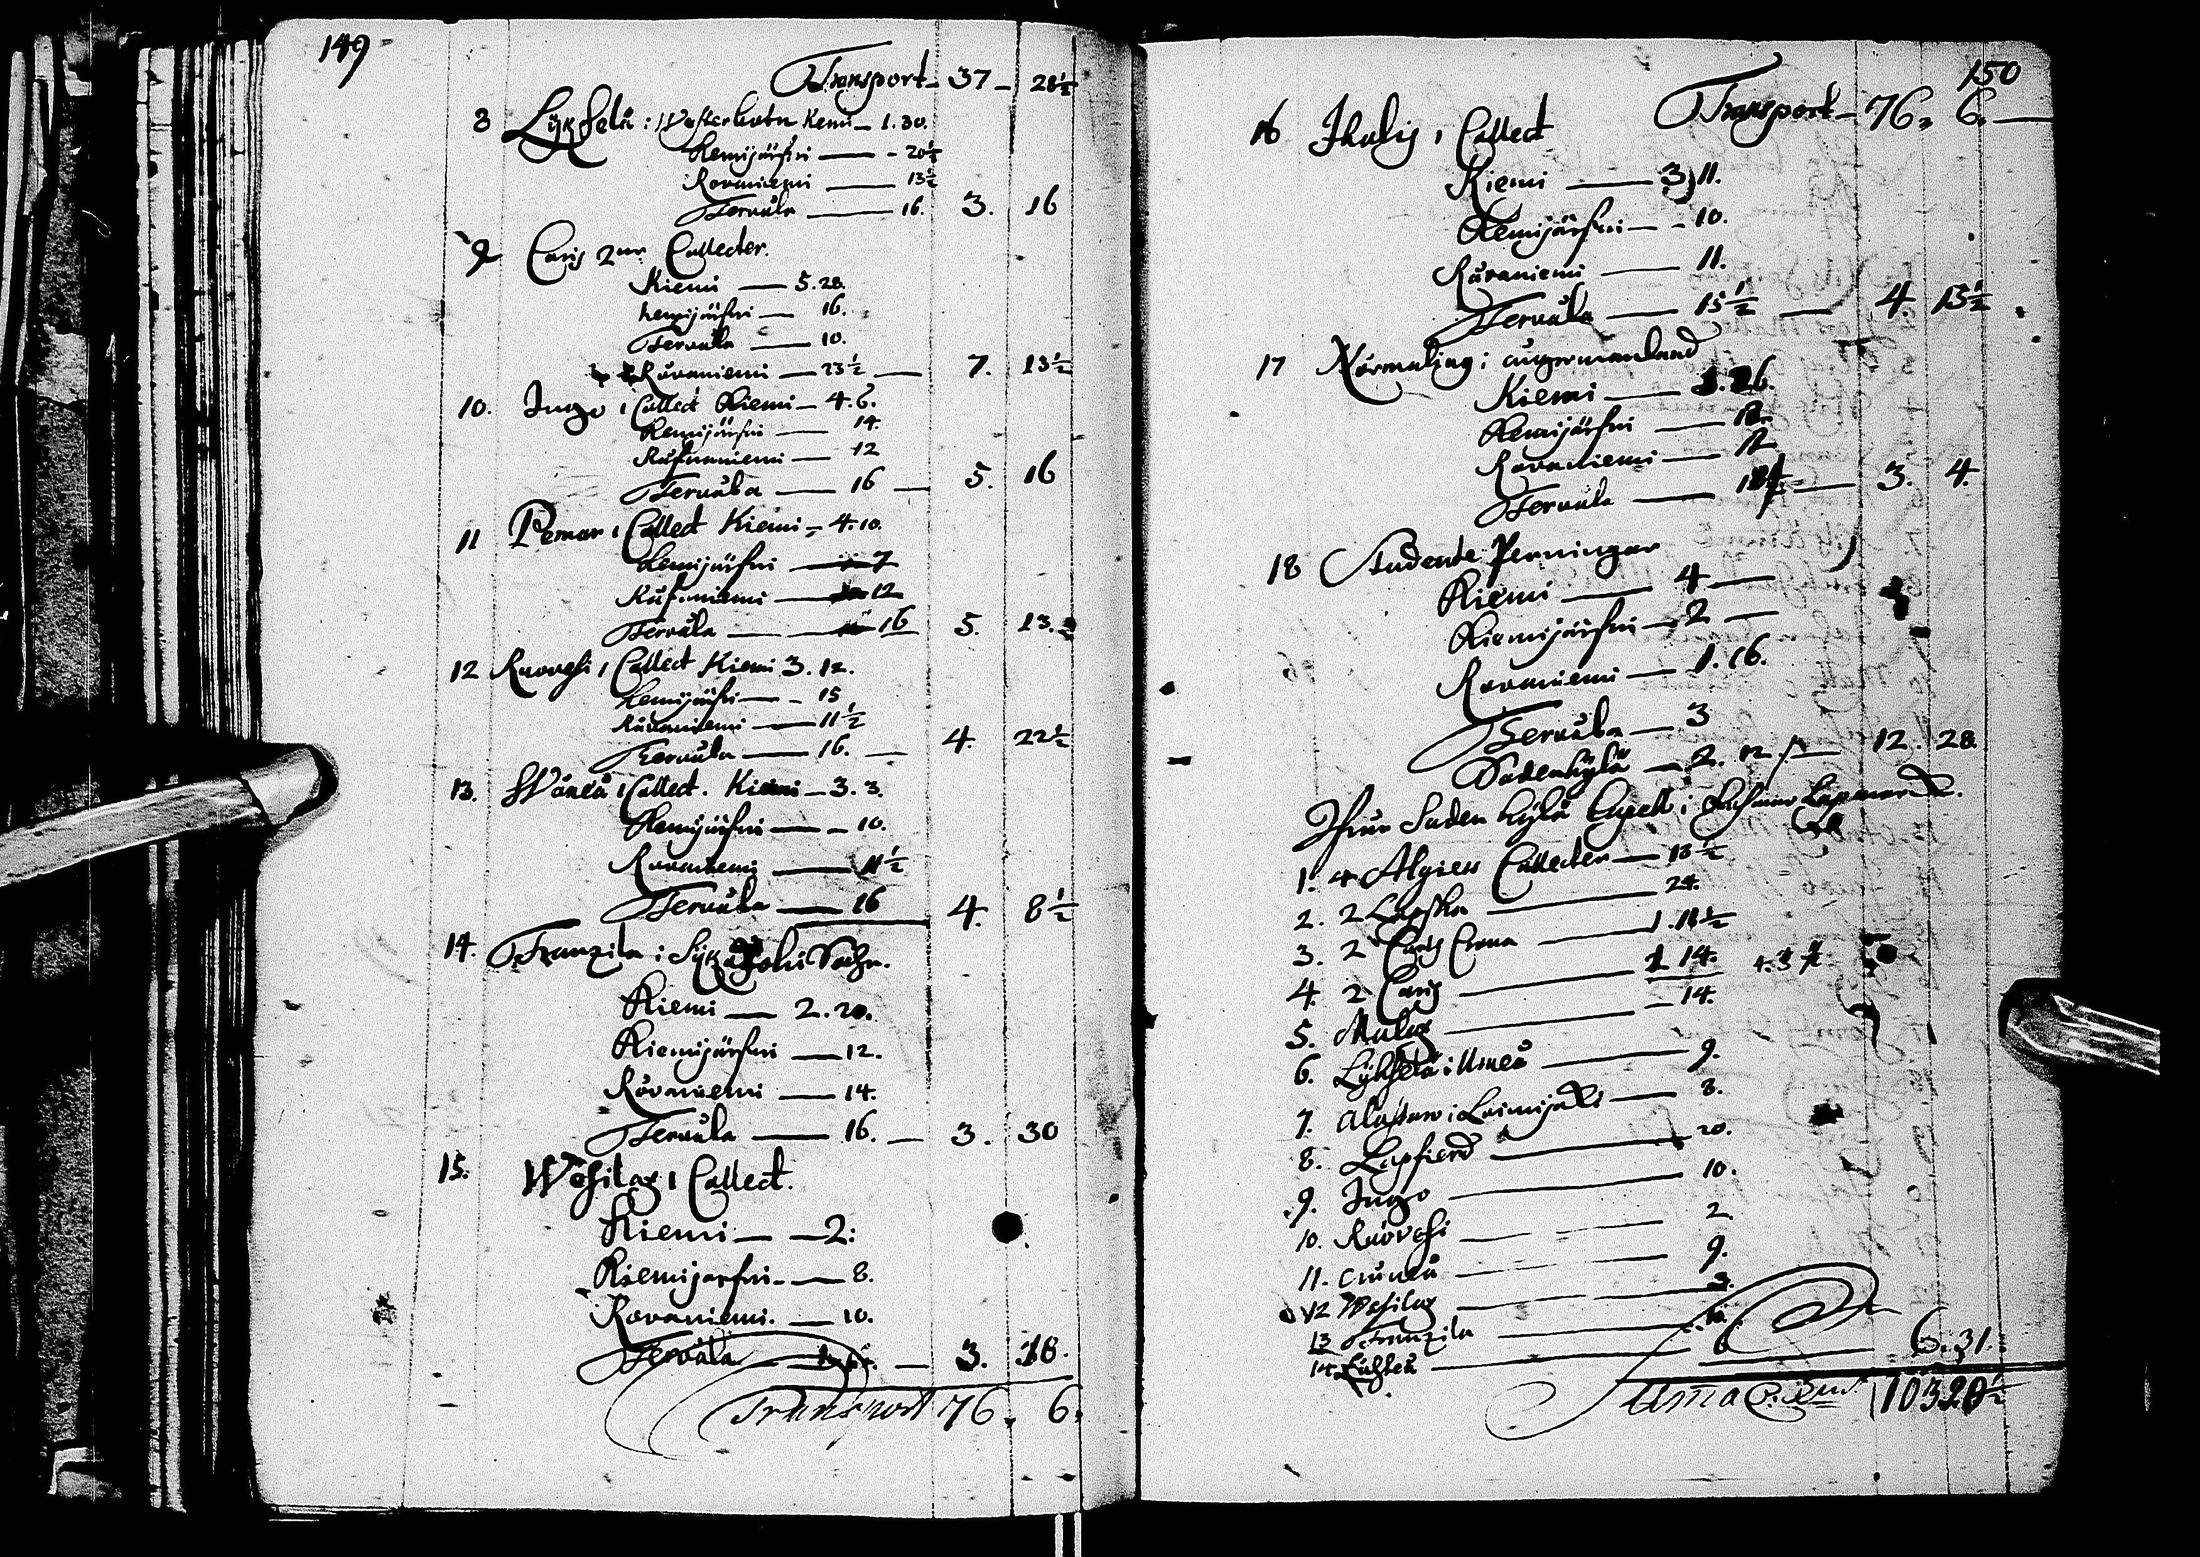 149
Transport - 37 - 28½
8 Lyksela i Westerbotn Kemi - 1. 30.
Kemijärfwi - 20½
Rovaniemi - 13½
Tervula - 16. 3. 16
9 Caris 2ne Collecter.
Kiemi - 5. 28.
kemijärfwi - 16.
Tervula - 10.
Råvaniemi - 23½ - 7. 13½
10. Ingo 1 Collect Kiemi - 4. 6.
Kemijärfwi - 14.
Råfvaniemi - 12
Tervula - 16 - 5. 16
11 Pemar 1 Collect Kiemi - 4. 10.
kemijärfwi - 7
Råfvaniemi - 12
Tervula - 16 5. 13.
12 Ruovesi 1 Collect Kiemi 3. 12.
kemijärfwi - 15
Råvaniemi - 11½
Tervula - 16. - 4. 22½
13. 1 Collect. Kiemi - 3. 3.
Kemijärfwi - 10.
Rovaniemi - 11½
Tervula - 16 4. 8½
14. Franzila i Sikajoki Sochn.
Kiemi - 2. 20.
Kiemijärfwi - 12.
Råvaniemi - 14.
Tervula - 16. - 3. 30
15. Wesilax 1 Collect.
Kiemi - 2:
Kiemijarfwi - 8.
Rovaniemi. - 10.
Tervula - 3. 18.
Transport 76. 6.
150
Transport - 76. 6. -
16 Ihalis 1 Collect
Kiemi - 3) 11.
Kemijärfwi - 10.
Råvaniemi - 11.
Tervula - 15½ - 4. 15½
17 Normaling i angermanland
Kiemi - 1. 26.
Kemijärfwi - 12.
Rovaniemi - 12
Tervula - 3. 4.
18 Studente Penningar
Kiemi - 4 -
Kiemijärfwi - 2 -
Rovaniemi - 1. 16.
Tervula - 3
Sodenkylä - 2. 12 - 12. 28
Ifrån Soden kylä Capell i Lapmarck.
1. 4 Algiers Collecter - 13½
2. 2 Lapska - 24.
3. 2 Carls Crona - 1. 11½
4. 2 Caris - 1 14.
5. Malax - 14.
6. Lykselä i Umeå - 9.
7. Alastaro i Loimijoki - 8.
8. Lapfierd - 20.
9. Ingo - 10.
10. Ruovesi - 2
11. - 9.
12 Wesilax - 3.
13 Franzila
14 - 6
6. 31.
Suma 103 20½